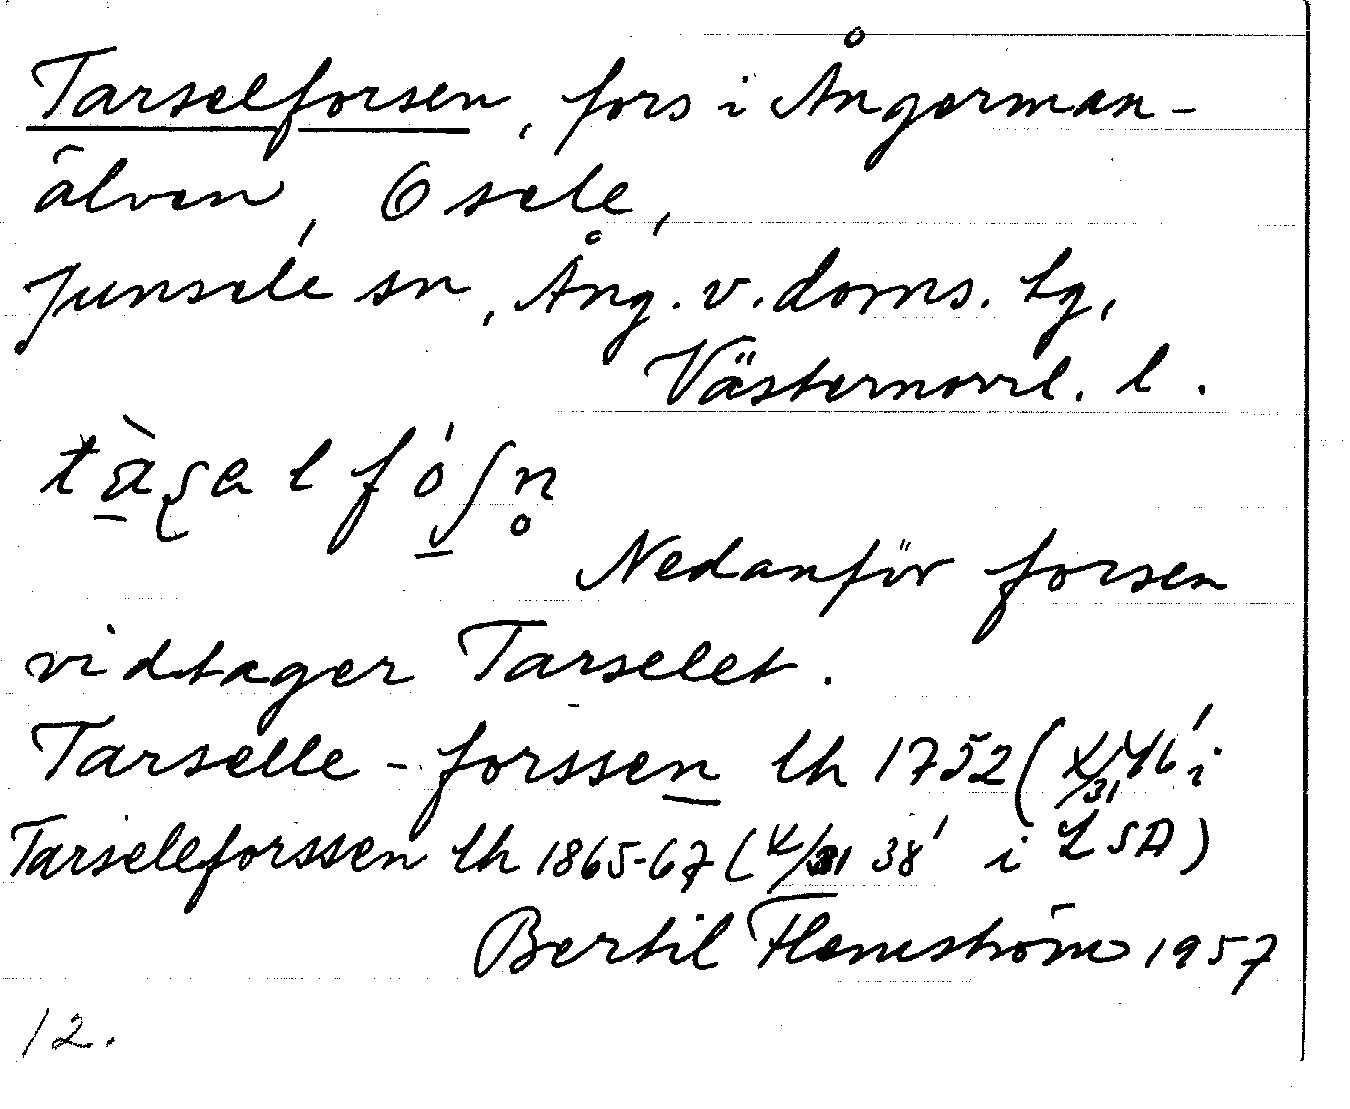 Tarselforsen, fors i Ångerman-
älven, Ö sele,
Junsele sn, Ång. v. doms. tg,
Västernorrl. l.
Nedanför forsen
vidtager Tarselet.
Tarselle-forssen lh 1752 (X/31 46' i
Tarseleforssen lh 1865-67 (4/31 38' i LSA)
Bertil Flemström 1957
12.